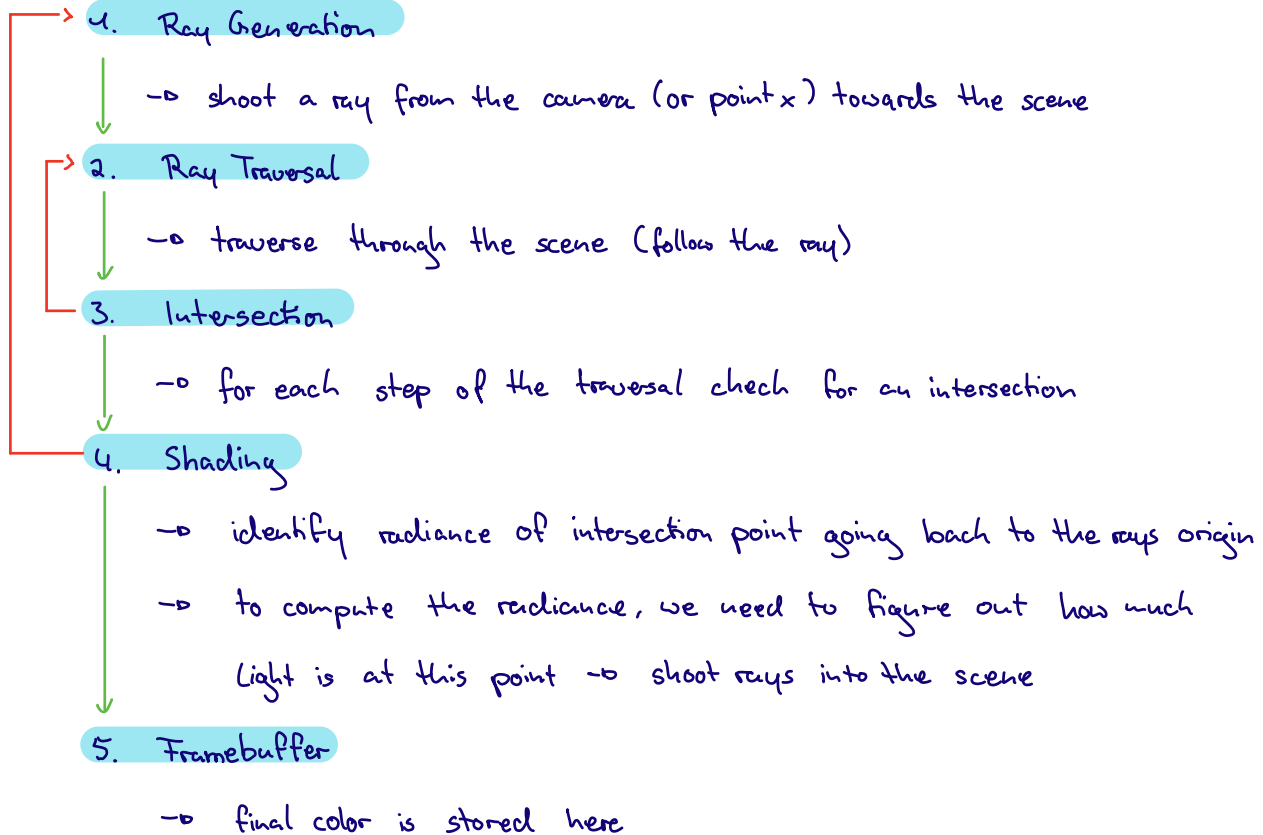 1. Ray Generation
→ shoot a ray from the camera (or point x) towards the scene
2. Ray Traversal
→ traverse through the scene (follow the ray)
3. Intersection
→ for each step of the traversal check for an intersection
4. Shading
→ identify radiance of intersection point going back to the rays origin
→ to compute the radiance, we need to figure out how much
light is at this point → shoot rays into the scene
5. Framebuffer
→ final color is stored here